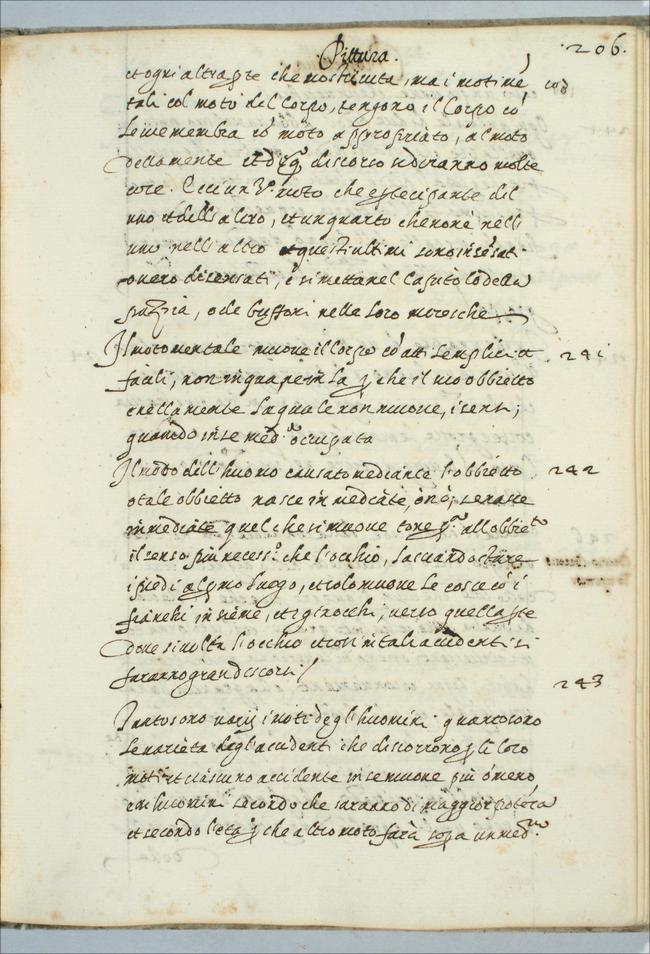 Pittura.
.206.
et ogni altra p̱te che mostri vita, ma i moti mē
tali col moto del corpo, tengono il corpo cō
le sue membra cō moto appropriato, al moto
della mente et di q̄ō discorso si diranno molte
cose. Ecci un 3.º moto che è p̱tecipante del
uno et dell'altro, et un quarto che non è nell'
uno nell'altro et questi ultimi sono insēsati
overo disensati, e si metta nel capitolo della
pazzia, o de buffoni nelle loro moresche
Il moto mentale muove il corpo cō atti semplici et
241
facili, non in qua ne in la p̱ che il suo obbietto
è nella mente la quale non muove, i sensi,
quando in se med.ª occupata
Il moto dell'huomo causato mediante l'obbietto
242
o tale obbietto nasce in mediate, o nò; se nasce
in mediate quel che si muove torce p.ª all'obbietº
il senso più necess.º che l'occhio, lasciando stare
i piedi al p̱mo luogo, et solo muove le cosce cō i
fianchi insieme, et i ginocchi, verso quella p̱te
dove si volta l'occhio et così in tali accidenti si
farà gran discorsi
243
Tanto sono varij i moti degl'huomini quanto sono
le varietà degl'accidenti che discorrono p̱ le loro
menti et ciascuno accidente in se muove più ò meno
essi huomini secondo che saranno di maggior potēza
et secondo l'età p̱ che altro moto farà sop̱a un med.mo